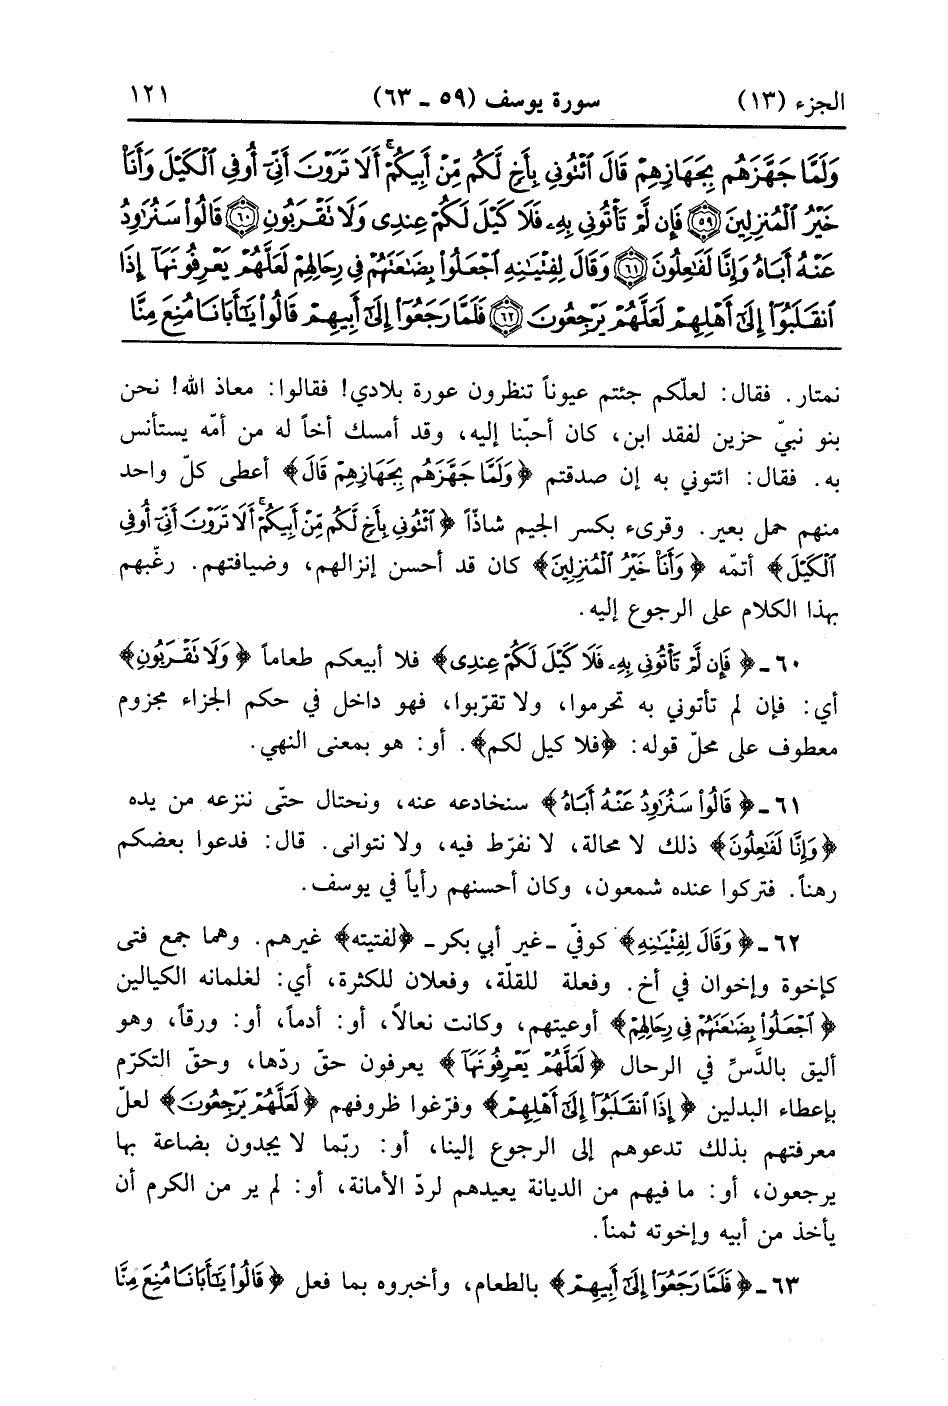 الجزء (١٣) سورة يوسف (٥٩ ـ ٦٣) ١٢١
وَلَمَّا جَهَّزَهُم بِجَهَازِهِمْ قَالَ ائْتُونِي بِأَخٍ لَّكُم مِّنْ أَبِيكُمْ أَلَا تَرَوْنَ أَنِّي أُوفِي الْكَيْلَ وَأَنَا
خَيْرُ الْمُنزِلِينَ ۝٥٩ فَإِن لَّمْ تَأْتُونِي بِهِ فَلَا كَيْلَ لَكُمْ عِندِي وَلَا تَقْرَبُونِ ۝٦٠ قَالُوا سَنُرَاوِدُ
عَنْهُ أَبَاهُ وَإِنَّا لَفَاعِلُونَ ۝٦١ وَقَالَ لِفِتْيَانِهِ اجْعَلُوا بِضَاعَتَهُمْ فِي رِحَالِهِمْ لَعَلَّهُمْ يَعْرِفُونَهَا إِذَا
انقَلَبُوا إِلَى أَهْلِهِمْ لَعَلَّهُمْ يَرْجِعُونَ ۝٦٢ فَلَمَّا رَجَعُوا إِلَى أَبِيهِمْ قَالُوا يَا أَبَانَا مُنِعَ مِنَّا
نمتار. فقال: لعلّكم جئتم عيوناً تنظرون عورة بلادي! فقالوا: معاذ الله! نحن
بنو نبيّ حزين لفقد ابن، كان أحبّنا إليه، وقد أمسك أخاً له من أمّه يستأنس
به. فقال: ائتوني به إن صدقتم ﴿وَلَمَّا جَهَّزَهُم بِجَهَازِهِمْ قَالَ﴾ أعطى كلّ واحد
منهم حمل بعير. وقرىء بكسر الجيم شاذّاً ﴿ائْتُونِي بِأَخٍ لَّكُم مِّنْ أَبِيكُمْ أَلَا تَرَوْنَ أَنِّي أُوفِي
الْكَيْلَ﴾ أتمّه ﴿وَأَنَا خَيْرُ الْمُنزِلِينَ﴾ كان قد أحسن إنزالهم، وضيافتهم. رغّبهم
بهذا الكلام على الرجوع إليه.
٦٠ ـ ﴿فَإِن لَّمْ تَأْتُونِي بِهِ فَلَا كَيْلَ لَكُمْ عِندِي﴾ فلا أبيعكم طعاماً ﴿وَلَا تَقْرَبُونِ﴾
أي: فإن لم تأتوني به تحرموا، ولا تقرّبوا، فهو داخل في حكم الجزاء مجزوم
معطوف على محلّ قوله: ﴿فلا كيل لكم﴾. أو: هو بمعنى النهي.
٦١ ـ ﴿قَالُوا سَنُرَاوِدُ عَنْهُ أَبَاهُ﴾ سنخادعه عنه، ونحتال حتّى ننزعه من يده
﴿وَإِنَّا لَفَاعِلُونَ﴾ ذلك لا محالة، لا نفرّط فيه، ولا نتوانى. قال: فدعوا بعضكم
رهناً. فتركوا عنده شمعون، وكان أحسنهم رأياً في يوسف.
٦٢ ـ ﴿وَقَالَ لِفِتْيَانِهِ﴾ كوفيّ ـ غير أبي بكر ـ ﴿لفتيته﴾ غيرهم. وهما جمع فتى
كإخوة وإخوان في أخ. وفعلة للقلّة، وفعلان للكثرة، أي: لغلمانه الكيالين
﴿اجْعَلُوا بِضَاعَتَهُمْ فِي رِحَالِهِمْ﴾ أوعيتهم، وكانت نعالاً، أو: أدماً، أو: ورقاً، وهو
أليق بالدَّسِّ في الرحال ﴿لَعَلَّهُمْ يَعْرِفُونَهَا﴾ يعرفون حقّ ردّها، وحقّ التكرّم
بإعطاء البدلين ﴿إِذَا انقَلَبُوا إِلَى أَهْلِهِمْ﴾ وفرّغوا ظروفهم ﴿لَعَلَّهُمْ يَرْجِعُونَ﴾ لعلّ
معرفتهم بذلك تدعوهم إلى الرجوع إلينا، أو: ربّما لا يجدون بضاعة بها
يرجعون، أو: ما فيهم من الديانة يعيدهم لردّ الأمانة، أو: لم ير من الكرم أن
يأخذ من أبيه وإخوته ثمناً.
٦٣ ـ ﴿فَلَمَّا رَجَعُوا إِلَى أَبِيهِمْ﴾ بالطعام، وأخبروه بما فعل ﴿قَالُوا يَا أَبَانَا مُنِعَ مِنَّا